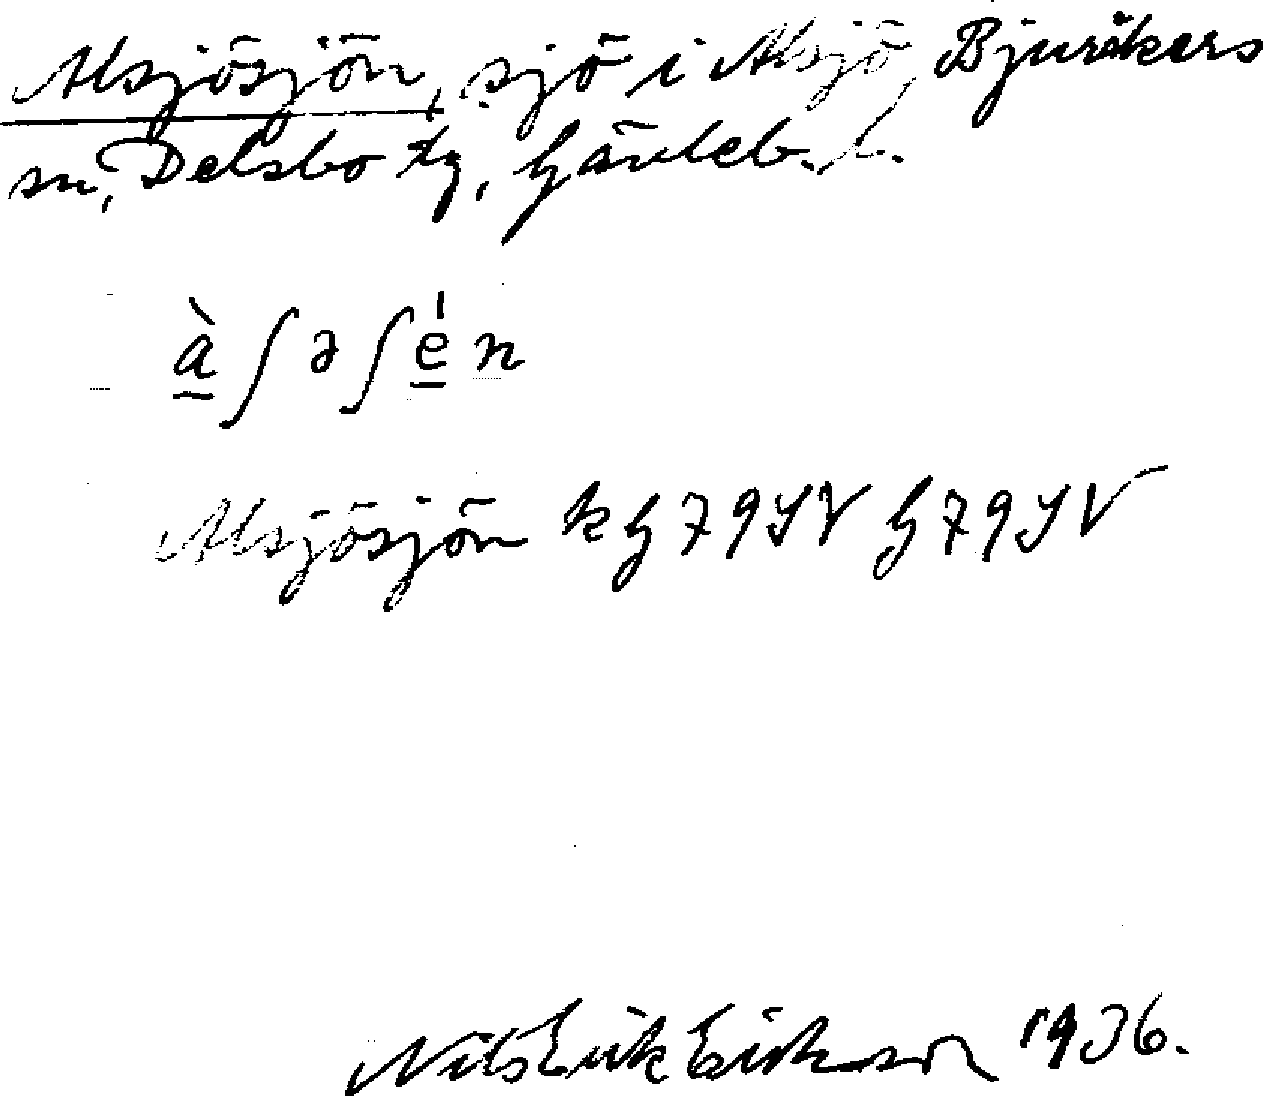 Alsjösjön, sjö i Alsjö, Bjuråkers
sn, Delsbo tg, Gävleb. l.
à̱ ʃ ə ʃ é̱ n
Alsjösjön k G 79 SV G 79 SV
Nils Erik Erikson 1936.